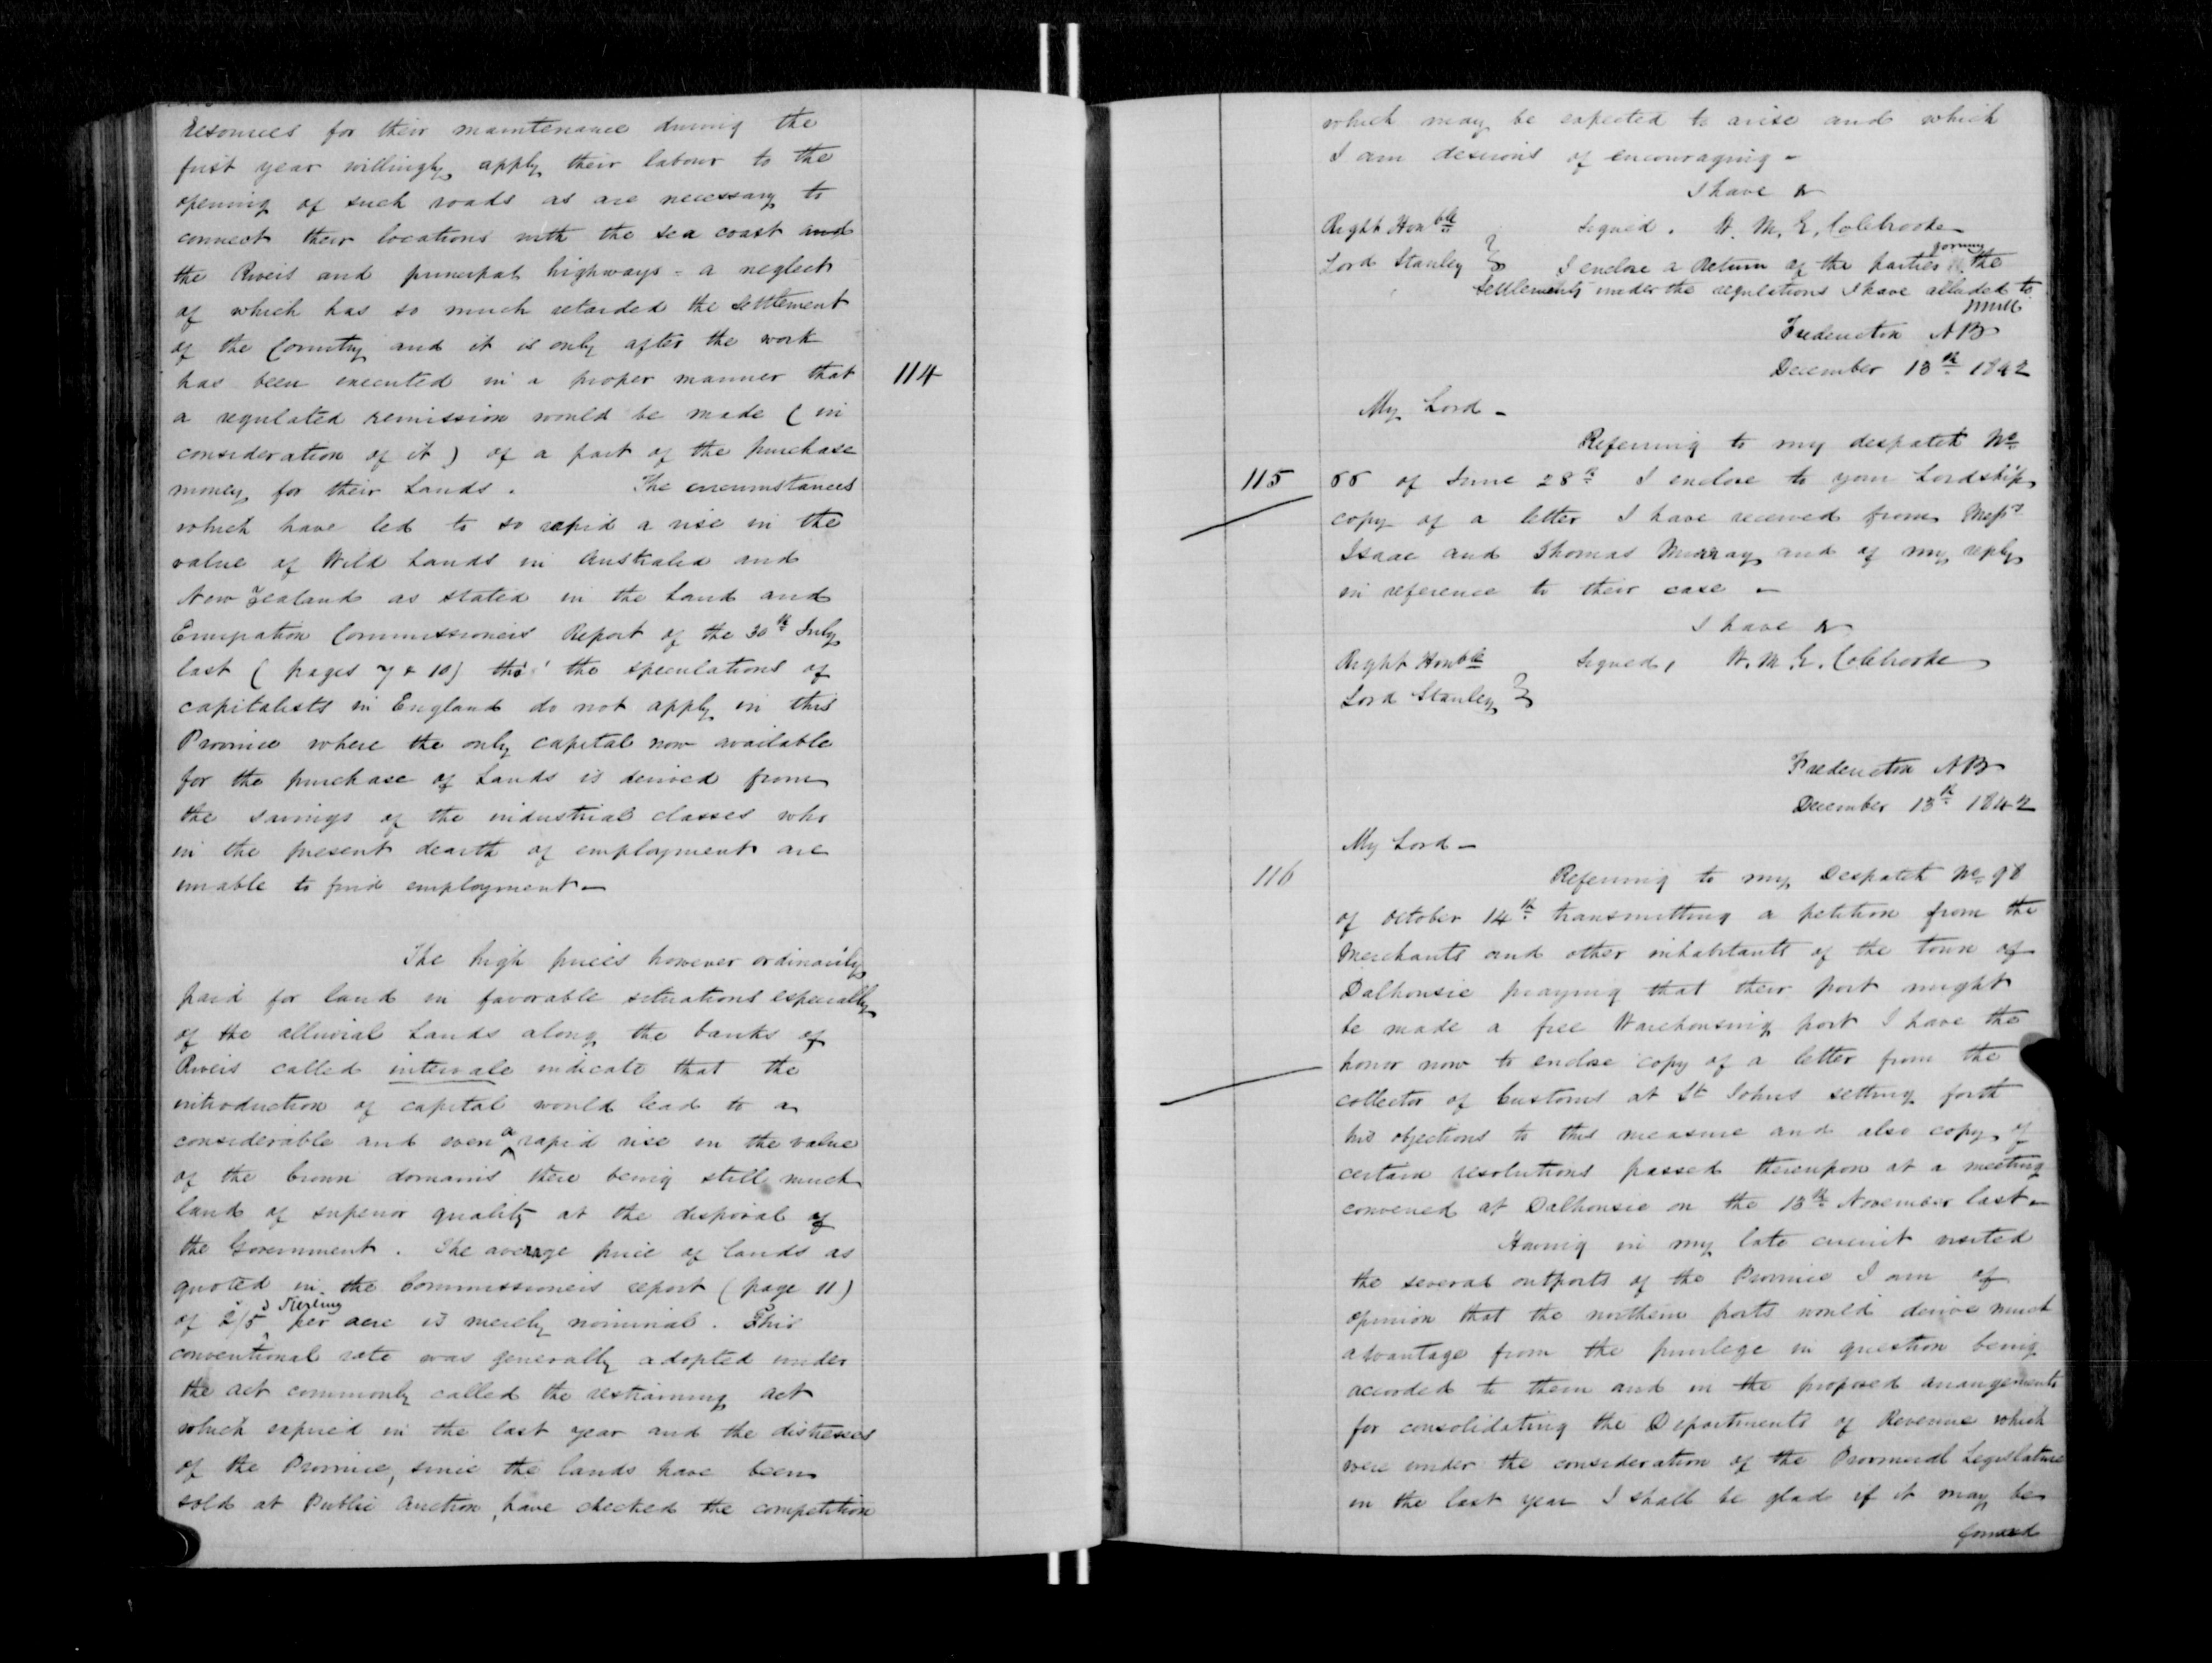 resources for their maintenance during the
first year willingly apply their labour to the
opening of such roads as are necessary to
connect their locations with the sea coast and
the Rivers and principal highways - a neglect
of which has so much retarded the settlement
of the Country and it is only after the work
has been executed in a proper manner that
114
a regulated remission would be made ( in
consideration of it ) of a part of the purchase
money for their Lands . The circumstances
which have led to so rapid a rise in the
value of Wild Lands in Australia and
New Zealand as stated in the Land and
Emigration Commissioners Report of the 30th July
last ( pages 7 & 10 ) thro' the speculations of
capitalists in England do not apply in this
Province where the only capital now available
for the purchase of Lands is derived from
the savings of the industrial classes who
in the present dearth of employment are
unable to find employment -
The high prices however ordinarily
paid for land in favorable situations especially
of the alluvial Lands along the banks of
Rivers called intervale indicate that the
introduction of capital would lead to a
considerable and even a rapid rise in the value
of the Crown domains there being still much
land of superior quality at the disposal of
the Government . The average price of lands as
quoted in the Commissioners report ( page 11 )
of 2s/5d Sterling per acre is merely nominal . This
conventional rate was generally adopted under
the act commonly called the restraining act
which expired in the last year and the distresses
of the Province, since the lands have been
sold at Public Auction, have checked the competition
which may be expected to arise and which
I am desirous of encouraging -
I have &
Right Honble Signed . W. M. G. Colebrooke
Lord Stanley } I enclose a Return of the parties forming the
Settlements under the regulations I have alluded to
Fredericton NB
December 13th 1842
My Lord -
Referring to my despatch No
115
55 of June 28th I enclose to your Lordship
copy of a letter I have received from Messrs
Isaac and Thomas Murray and of my reply
in reference to their case -
I have &
Right Honble Signed, W. M. G. Colebrooke
Lord Stanley }
Fredericton NB
December 13th 1842
My Lord -
116
Referring to my Despatch No 98
of October 14th transmitting a petition from the
Merchants and other inhabitants of the town of
Dalhousie praying that their port might
be made a free Warehousing port I have the
honor now to enclose copy of a letter from the
collector of Customs at St Johns setting forth
his objections to this measure and also copy of
certain resolutions passed thereupon at a meeting
convened at Dalhousie on the 13th November last -
Having in my late circuit visited
the several outports of the Province I am of
opinion that the northern ports would derive much
advantage from the privilege in question being
accorded to them and in the proposed arrangements
for consolidating the Departments of Revenue which
were under the consideration of the Provincial Legislature
in the last year I shall be glad if it may be
found